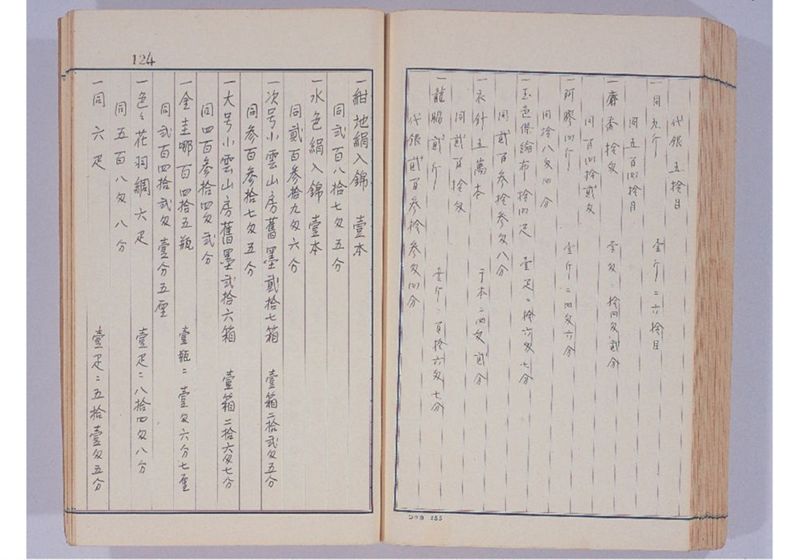 代銀 五拾目
一同 九斤 壹斤ニ 六拾目
同 五百四拾目
一麝香 拾匁 壹匁ニ 拾四匁貳分
同 百四拾貳匁
一阿膠 四斤 壹斤ニ 四匁六分
同 拾八匁四分
一玉色保綸布 拾四疋 壹疋ニ 拾六匁七分
同 貳百参拾参匁八分
一衣針 五萬本 千本ニ 四匁貳分
同 貳百拾匁
一龍脳 貳斤 壹斤ニ 百拾六匁七分
代銀 貳百参拾参匁四分
124
一紺地絹入錦 壹本
同 弐百八拾七匁五分
一水色絹入錦 壹本
同 貳百参拾九匁六分
一次号小雲山房舊墨 貳拾七箱 壹箱ニ 拾弐匁五分
同 参百参拾七匁五分
一大号小雲山房舊墨 弐拾六箱 壹箱ニ 拾六匁七分
同 四百参拾四匁弐分
一金圭哪百四拾五瓶 壹瓶ニ 壹匁六分七厘
同 弐百四拾弐匁壹分五厘
一色々花羽綢 六疋 壹疋ニ 八拾四匁八分
同 五百八匁八分
一同 六疋 壹疋ニ 五拾壹匁五分